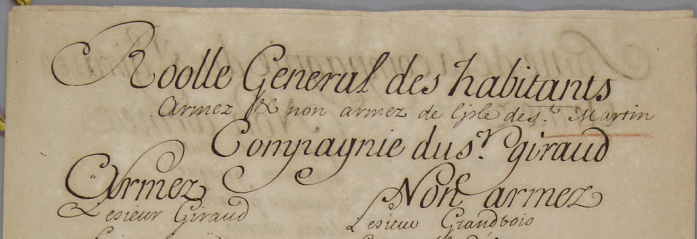 Roolle General des habitants
Armez & non armez de l'jsle de St. Martin
Compagnie du Sr. Giraud
Armez
Non armez
Lesieur Giraud
Lesieur Grandbois